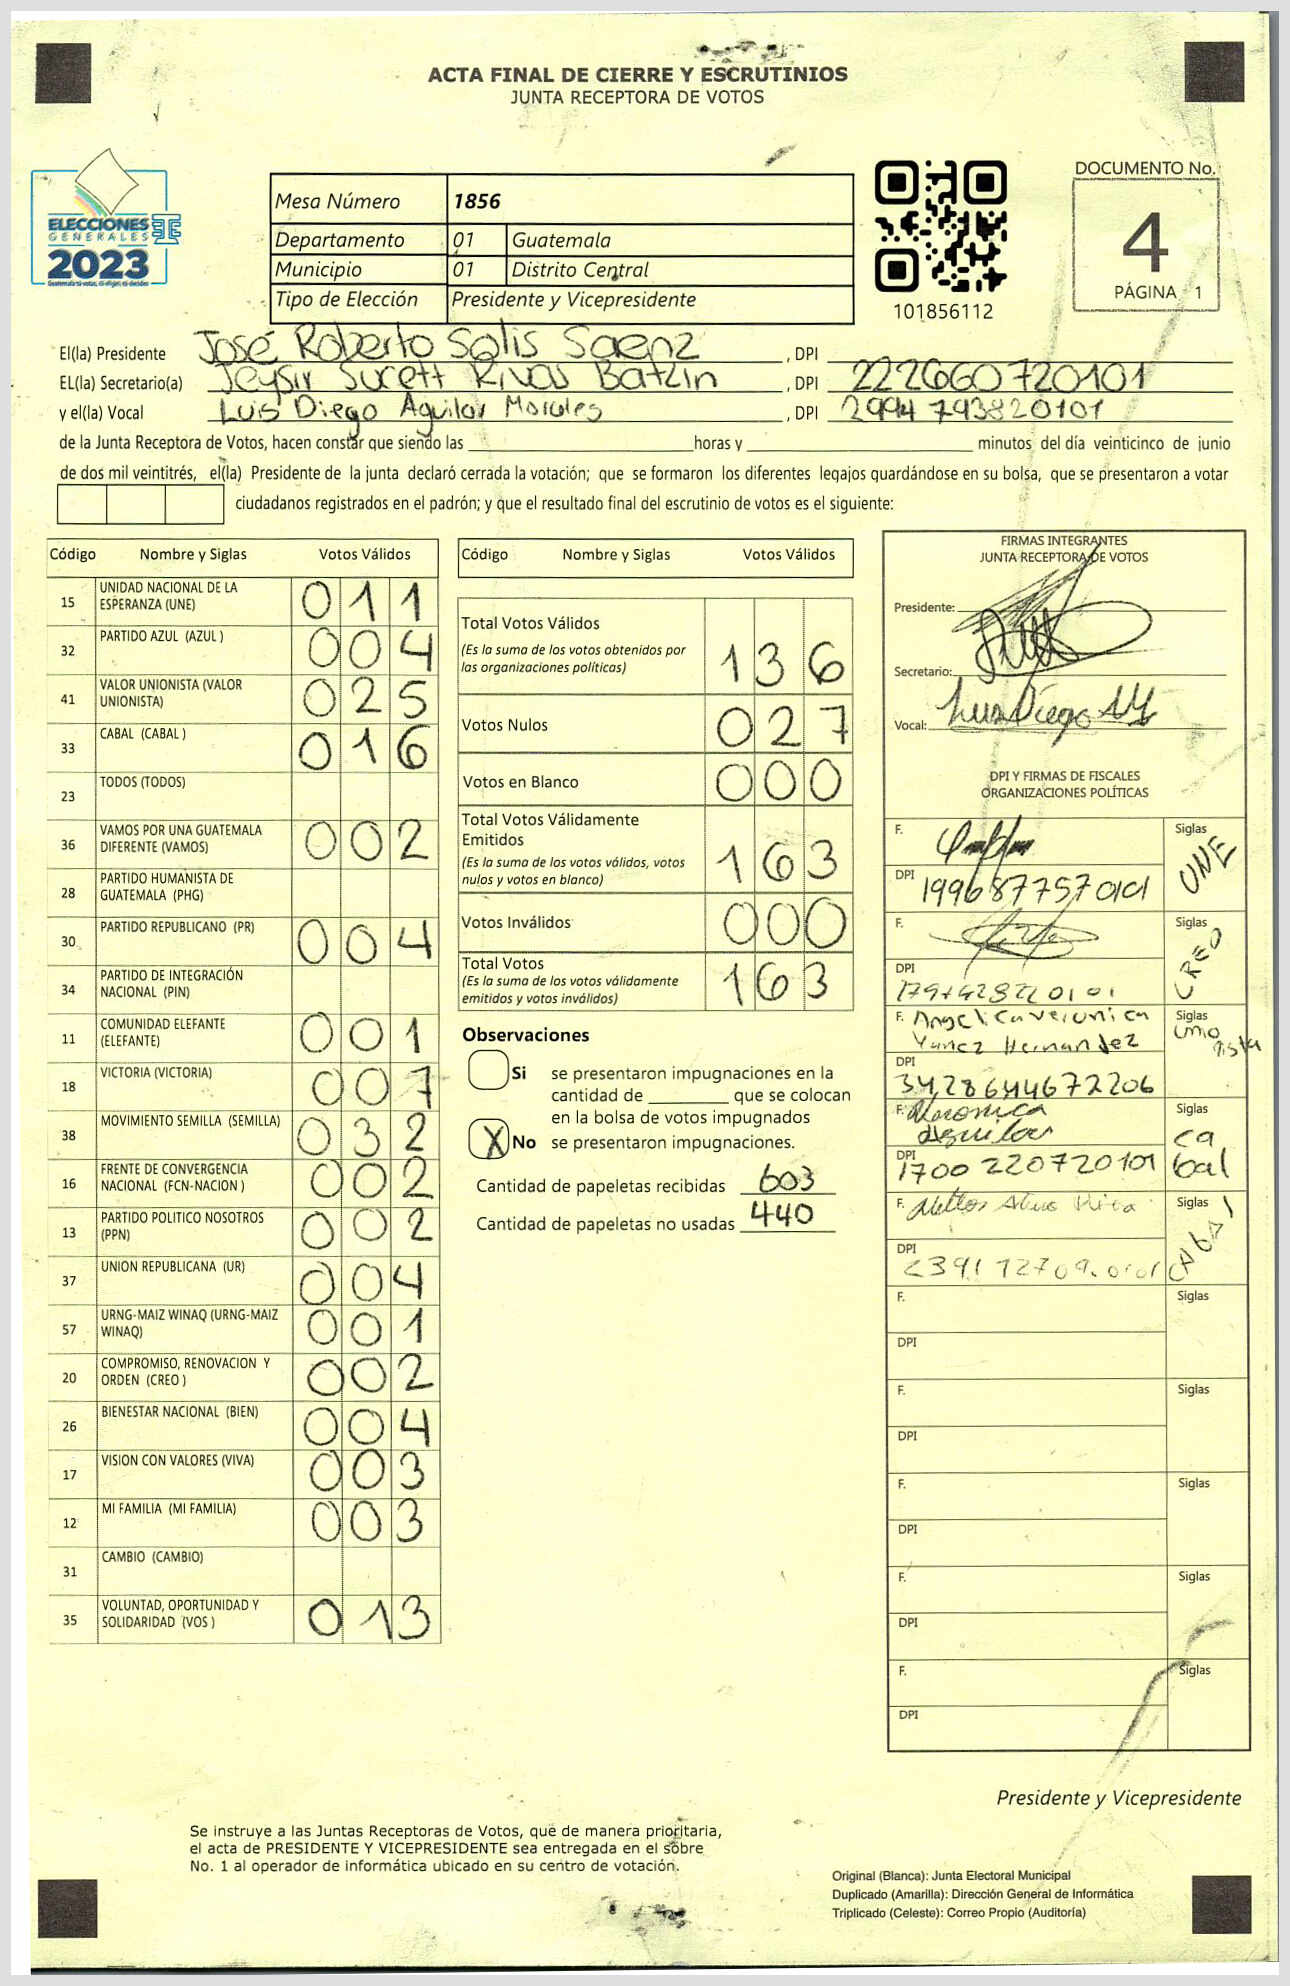 ACTA FINAL DE CIERRE Y ESCRUTINIOS
JUNTA RECEPTORA DE VOTOS
ELECCIONES
GENERALES
2023
Mesa Número 1856
Departamento 01 Guatemala
Municipio 01 Distrito Central
Tipo de Elección Presidente y Vicepresidente
101856112
DOCUMENTO No.
4
PÁGINA 1
El(la) Presidente José Roberto Solis Saenz , DPI
EL(la) Secretario(a) Jeysir Sucett Rivas Batzin , DPI 222660720101
y el(la) Vocal Luis Diego Aguilar Morales , DPI 2994793820101
de la Junta Receptora de Votos, hacen constar que siendo las horas y minutos del día veinticinco de junio
de dos mil veintitrés, el(la) Presidente de la junta declaró cerrada la votación; que se formaron los diferentes legajos quardándose en su bolsa, que se presentaron a votar
ciudadanos registrados en el padrón; y que el resultado final del escrutinio de votos es el siguiente:
Código Nombre y Siglas Votos Válidos
15 UNIDAD NACIONAL DE LA ESPERANZA (UNE) 011
32 PARTIDO AZUL (AZUL ) 004
41 VALOR UNIONISTA (VALOR UNIONISTA) 025
33 CABAL (CABAL ) 016
23 TODOS (TODOS)
36 VAMOS POR UNA GUATEMALA DIFERENTE (VAMOS) 002
28 PARTIDO HUMANISTA DE GUATEMALA (PHG)
30 PARTIDO REPUBLICANO (PR) 004
34 PARTIDO DE INTEGRACIÓN NACIONAL (PIN)
11 COMUNIDAD ELEFANTE (ELEFANTE) 001
18 VICTORIA (VICTORIA) 007
38 MOVIMIENTO SEMILLA (SEMILLA) 032
16 FRENTE DE CONVERGENCIA NACIONAL (FCN-NACION ) 002
13 PARTIDO POLITICO NOSOTROS (PPN) 002
37 UNION REPUBLICANA (UR) 004
57 URNG-MAIZ WINAQ (URNG-MAIZ WINAQ) 001
20 COMPROMISO, RENOVACION Y ORDEN (CREO ) 002
26 BIENESTAR NACIONAL (BIEN) 004
17 VISION CON VALORES (VIVA) 003
12 MI FAMILIA (MI FAMILIA) 003
31 CAMBIO (CAMBIO)
35 VOLUNTAD, OPORTUNIDAD Y SOLIDARIDAD (VOS ) 013
Código Nombre y Siglas Votos Válidos
Total Votos Válidos 136
(Es la suma de los votos obtenidos por
las organizaciones políticas)
Votos Nulos 027
Votos en Blanco 000
Total Votos Válidamente
Emitidos 163
(Es la suma de los votos válidos, votos
nulos y votos en blanco)
Votos Inválidos 000
Total Votos 163
(Es la suma de los votos válidamente
emitidos y votos inválidos)
Observaciones
Si se presentaron impugnaciones en la
cantidad de que se colocan
en la bolsa de votos impugnados
X No se presentaron impugnaciones.
Cantidad de papeletas recibidas 603
Cantidad de papeletas no usadas 440
FIRMAS INTEGRANTES
JUNTA RECEPTORA DE VOTOS
Presidente:
Secretario:
Vocal: Luis Diego AM
DPI Y FIRMAS DE FISCALES
ORGANIZACIONES POLÍTICAS
F. Siglas UNE
DPI 1996877570101
F. Siglas CREO
DPI
F. Angelica Veronica Siglas Unionista
Yanez Hernandez
DPI 3428644672206
F. Veronica Siglas cabal
Aguilar
DPI 1700220720101
F. Siglas CABAL
DPI
F. Siglas
DPI
F. Siglas
DPI
F. Siglas
DPI
F. Siglas
DPI
F. Siglas
DPI
Presidente y Vicepresidente
Se instruye a las Juntas Receptoras de Votos, que de manera prioritaria,
el acta de PRESIDENTE Y VICEPRESIDENTE sea entregada en el sobre
No. 1 al operador de informática ubicado en su centro de votación.
Original (Blanca): Junta Electoral Municipal
Duplicado (Amarilla): Dirección General de Informática
Triplicado (Celeste): Correo Propio (Auditoría)